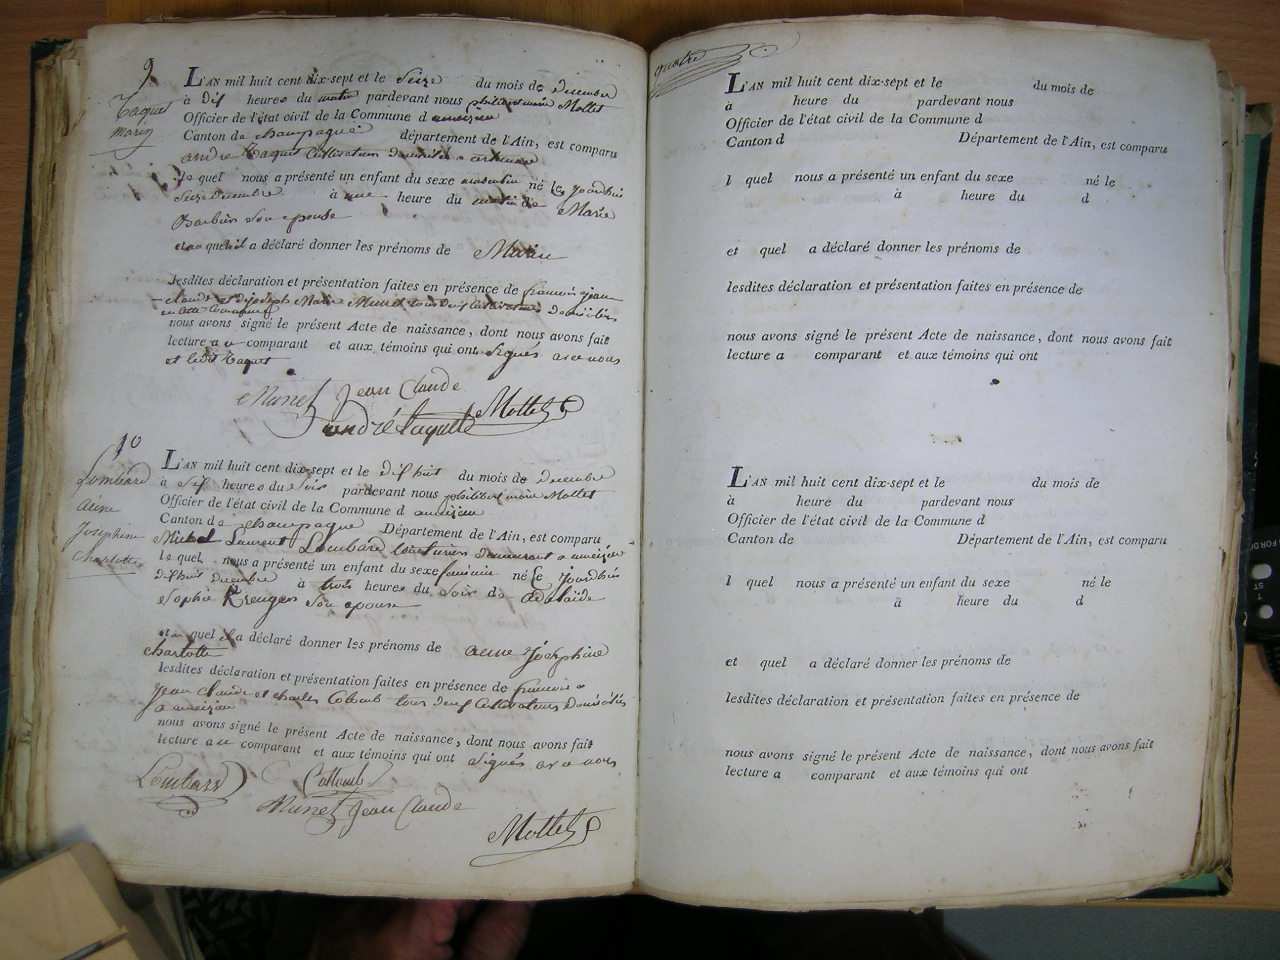 9
Taquet
L'AN mil huit cent dix-sept et le Seize du mois de decembre
à dix heures du matin pardevant nous philibert marie Mottet
Officier de l'état civil de la Commune d
Canton de champagne département de l'Ain, est comparu
andré Taquet Cultivateur
le quel nous a présenté un enfant du sexe masculin né le jourdhui
Seize decembre à une heure du matin de Marie
Son epouse
et au quel il a déclaré donner les prénoms de
lesdites déclaration et présentation faites en présence de françois jean
claude et Joseph Marie tous deux Cultivateurs Domiciliés
en cette Commune
nous avons signé le présent Acte de naissance, dont nous avons fait
lecture au comparant et aux témoins qui ont Signés avec nous
et ledit Taquet
Jean Claude
Mottet
andré taquette
10
Lombard
anne
Josephine
Charlotte
L'AN mil huit cent dix-sept et le dixhuit du mois de decembre
à six heures du Soir pardevant nous philibert marie Mottet
Officier de l'état civil de la Commune d
Canton de champagne Département de l'Ain, est comparu
Michel Laurent Lombard demeurant a
le quel nous a présenté un enfant du sexe feminin né le jourdhui
dixhuit decembre à trois heures du Soir de adelaide
Sophie Son epouse
et au quel il a déclaré donner les prénoms de anne Josephine
charlotte
lesdites déclaration et présentation faites en présence de françois
Jean claude et charles Colomb tous deux Cultivateurs Domiciliés
a
nous avons signé le présent Acte de naissance, dont nous avons fait
lecture au comparant et aux témoins qui ont Signés avec nous
Lombard
Jean Claude
Mottet
quatre
L'AN mil huit cent dix-sept et le du mois de
à heure du pardevant nous
Officier de l'état civil de la Commune d
Canton d Département de l'Ain, est comparu
l quel nous a présenté un enfant du sexe né le
à heure du d
et quel a déclaré donner les prénoms de
lesdites déclaration et présentation faites en présence de
nous avons signé le présent Acte de naissance, dont nous avons fait
lecture a comparant et aux témoins qui ont
L'AN mil huit cent dix-sept et le du mois de
à heures du pardevant nous
Officier de l'état civil de la Commune d
Canton de Département de l'Ain, est comparu
l quel nous a présenté un enfant du sexe né le
à heure du d
et quel a déclaré donner les prénoms de
lesdites déclaration et présentation faites en présence de
nous avons signé le présent Acte de naissance, dont nous avons fait
lecture a comparant et aux témoins qui ont